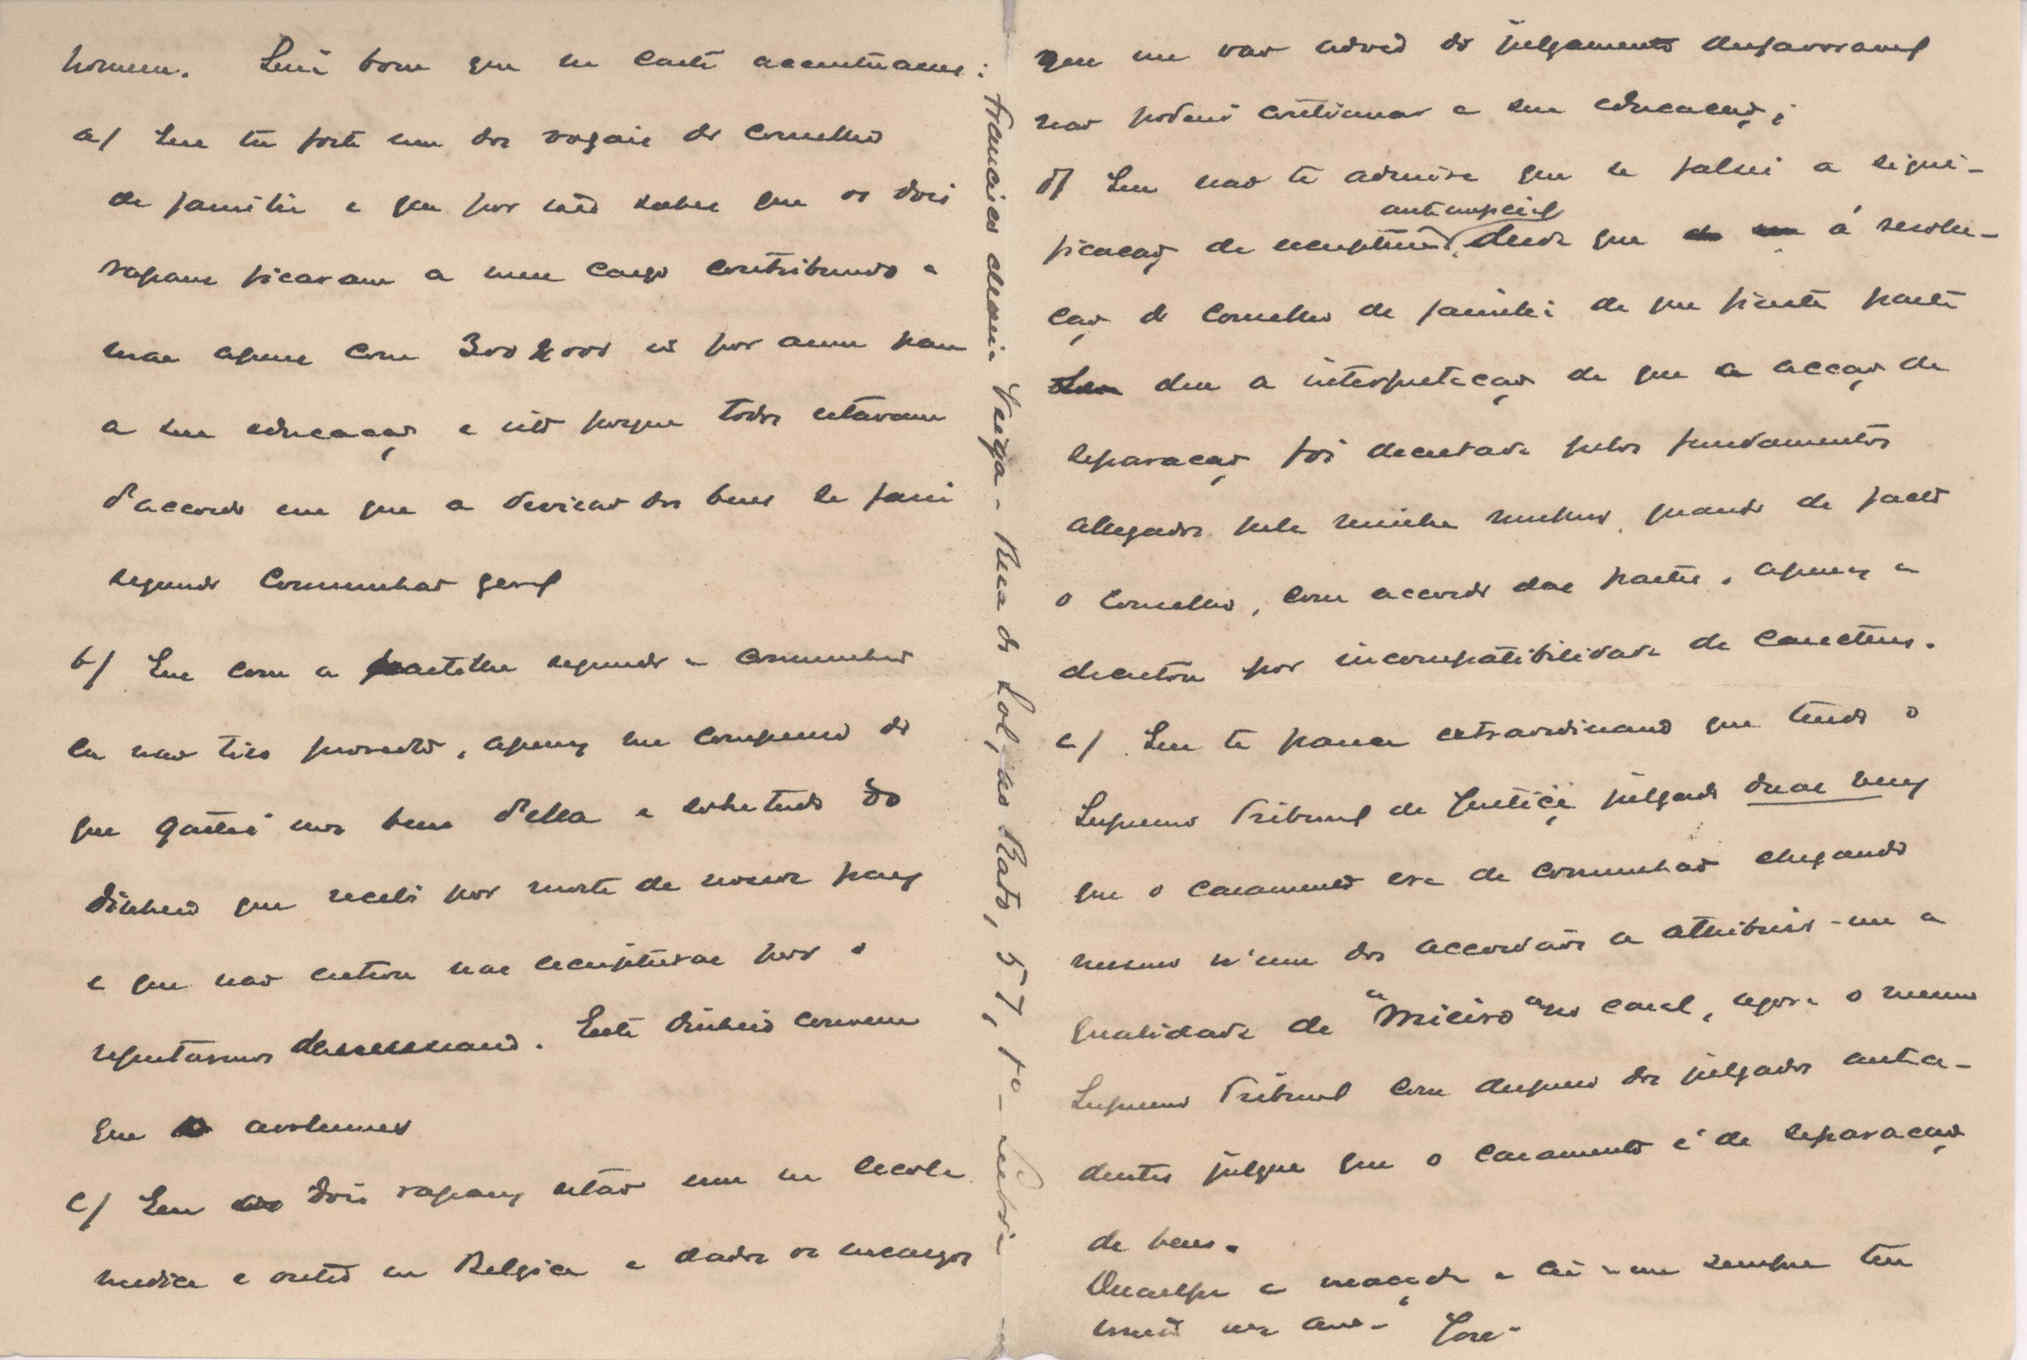 homem. Será bom que na carta accentuasses:
a/ Que tu foste um dos vogaes do conselho
de familia e que por isso sabes que os dois
rapazes ficaram a meu cargo contribuindo a
mãe apenas com 300$000 rs por anno para
a sua educação e isto porque todos estavam
d'accordo em que a divisão dos bens se faria
segundo communhão geral
b/ Que com a partilha segundo a communhão
eu não tiro proveito, apenas me compenso do
que gastei nos bens d'ella e sobretudo do
dinheiro que recebi por morte de nossos paes
e que não entrou nas escripturas por o
reputarmos desnecessario. Este dinheiro convem
que avolumes
c/ Que dois rapazes estão um na escola
medica e outro na Belgica e dados os encargos
que me vão advir do julgamento desfavoravel
não poderei continuar a sua educação;
d/ Que não te admira que se falsei a signi-
ficação da escriptura antenupcial desde que á resolu-
ção do conselho de familia de que fizeste parte
deu a interpretação de que a acção de
separação foi decretada pelos fundamentos
allegados pela minha mulher, quando de facto
o conselho, com accordo das partes, apenas a
decretou por incompatibilidade de caracteres.
e/ Que te parece extraordinario que tendo o
Supremo Tribunal de Justiça julgado duas vezes
que o casamento era de communhão chegando
mesmo n'um dos accordãos a attribuir-me a
qualidade de "meeiro" no casal, agora o mesmo
Supremo Tribunal com desprezo dos julgados antece-
dentes julgue que o casamento é de separação
de bens.
Desculpa a massada e crê-me sempre teu
irmão José
Francisco Maria Veiga - Rua do Sol, ao Rato, 57, 1º - Lisboa